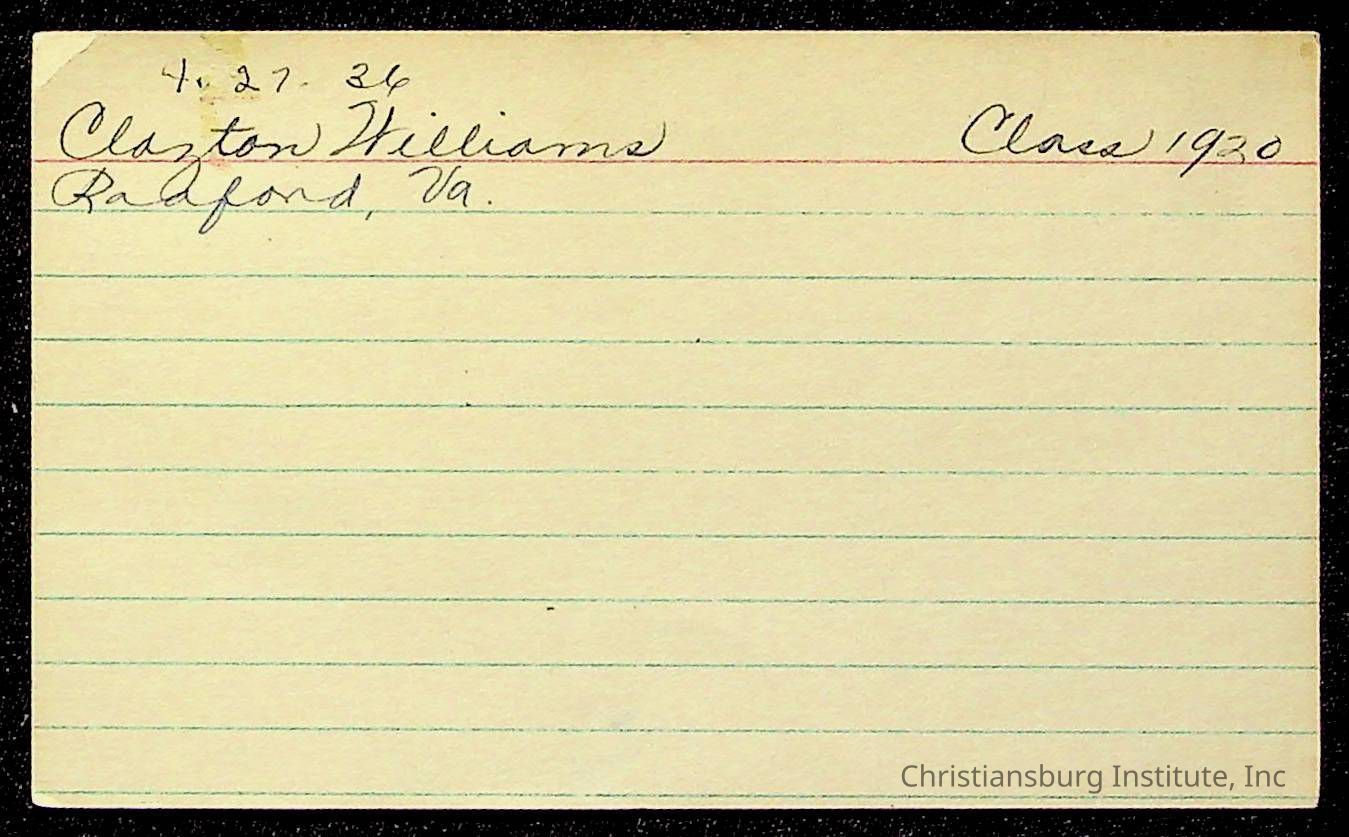 4. 27. 36
Clayton Williams Class 1920
Radford, Va.
Christiansburg Institute, Inc